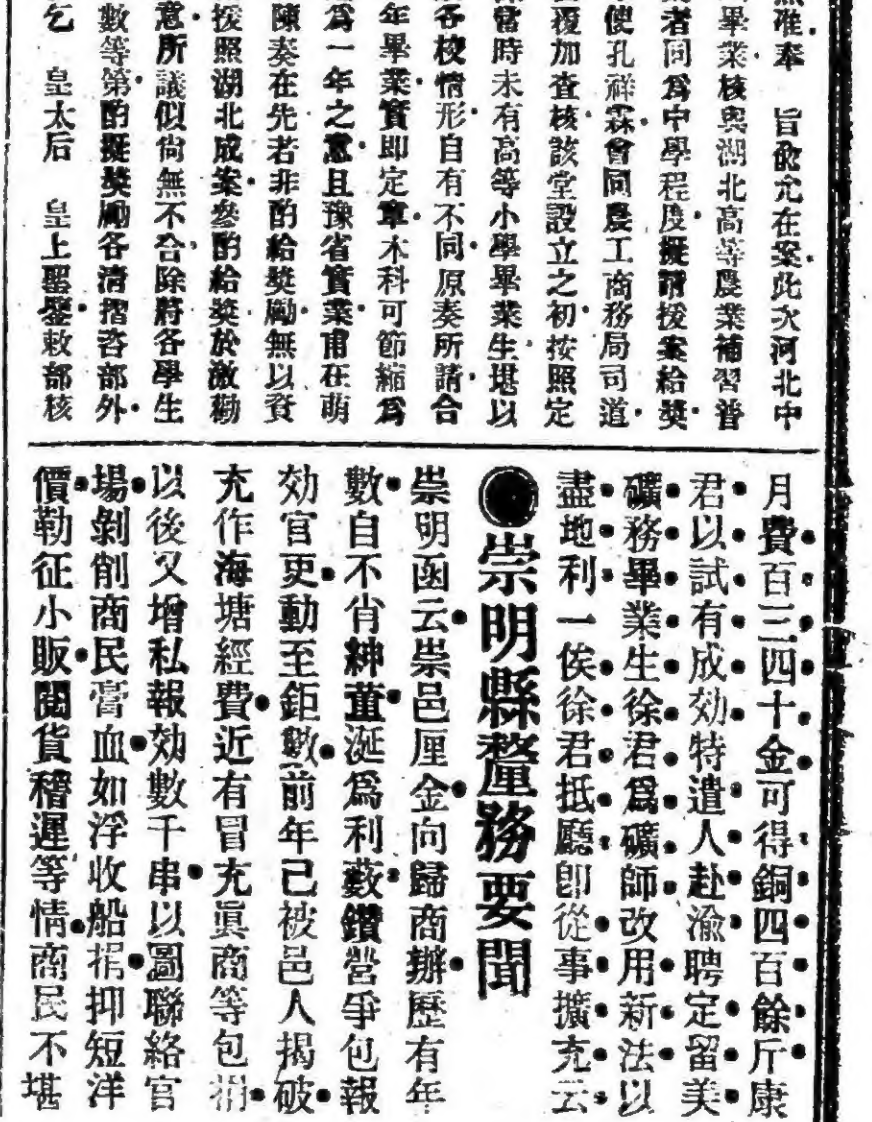 無准奉　旨俞允在案此次河北中
畢業核與湖北高等農業補習普
者同爲中學程度擬請援案給獎
使孔祥霖會同農工商務局司道
覆加查核該堂設立之初按照定
當時未有高等小學畢業生堪以
各校情形自有不同原奏所請合
年畢業實即定章本科可節縮爲
爲一年之意且豫省實業甫在萌
陳奏在先若非酌給獎勵無以資
援照湖北成案參酌給獎於激勸
意所議似尙無不合除將各學生
數等第酌擬獎勵各清摺咨部外
乞　皇太后　皇上聖鑒敕部核
月費百三四十金可得銅四百餘斤康
君以試有成効特遣人赴渝聘定留美
礦務畢業生徐君爲礦師改用新法以
盡地利一俟徐君抵廳即從事擴充云
●崇明縣釐務要聞
崇明函云崇邑厘金向歸商辦歷有年
數自不肖紳董涎爲利藪鑽營爭包報
効官吏動至鉅數前年已被邑人揭破
充作海塘經費近有冒充眞商等包捐
以後又增私報効數千串以圖聯絡官
場剝削商民膏血如浮收船捐抑短洋
價勒征小販閱貨稽遲等情商民不堪